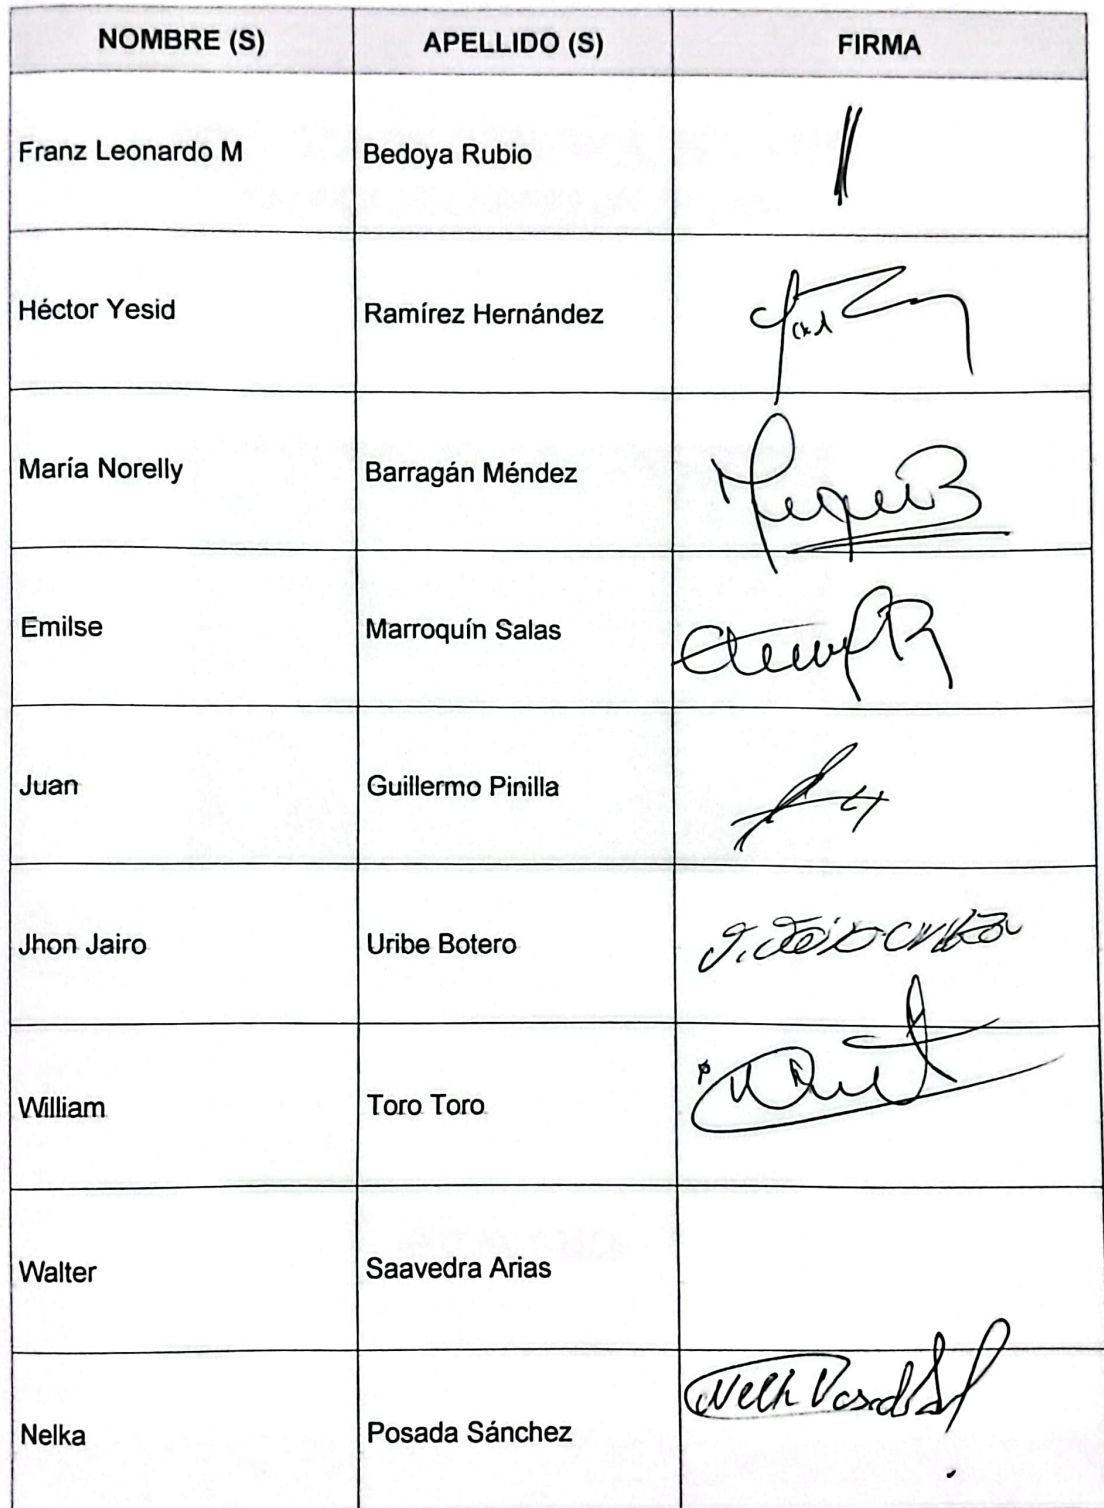 NOMBRE (S) APELLIDO (S) FIRMA
Franz Leonardo M Bedoya Rubio
Héctor Yesid Ramírez Hernández
María Norelly Barragán Méndez
Emilse Marroquín Salas
Juan Guillermo Pinilla
Jhon Jairo Uribe Botero
William Toro Toro
Walter Saavedra Arias
Nelka Posada Sánchez